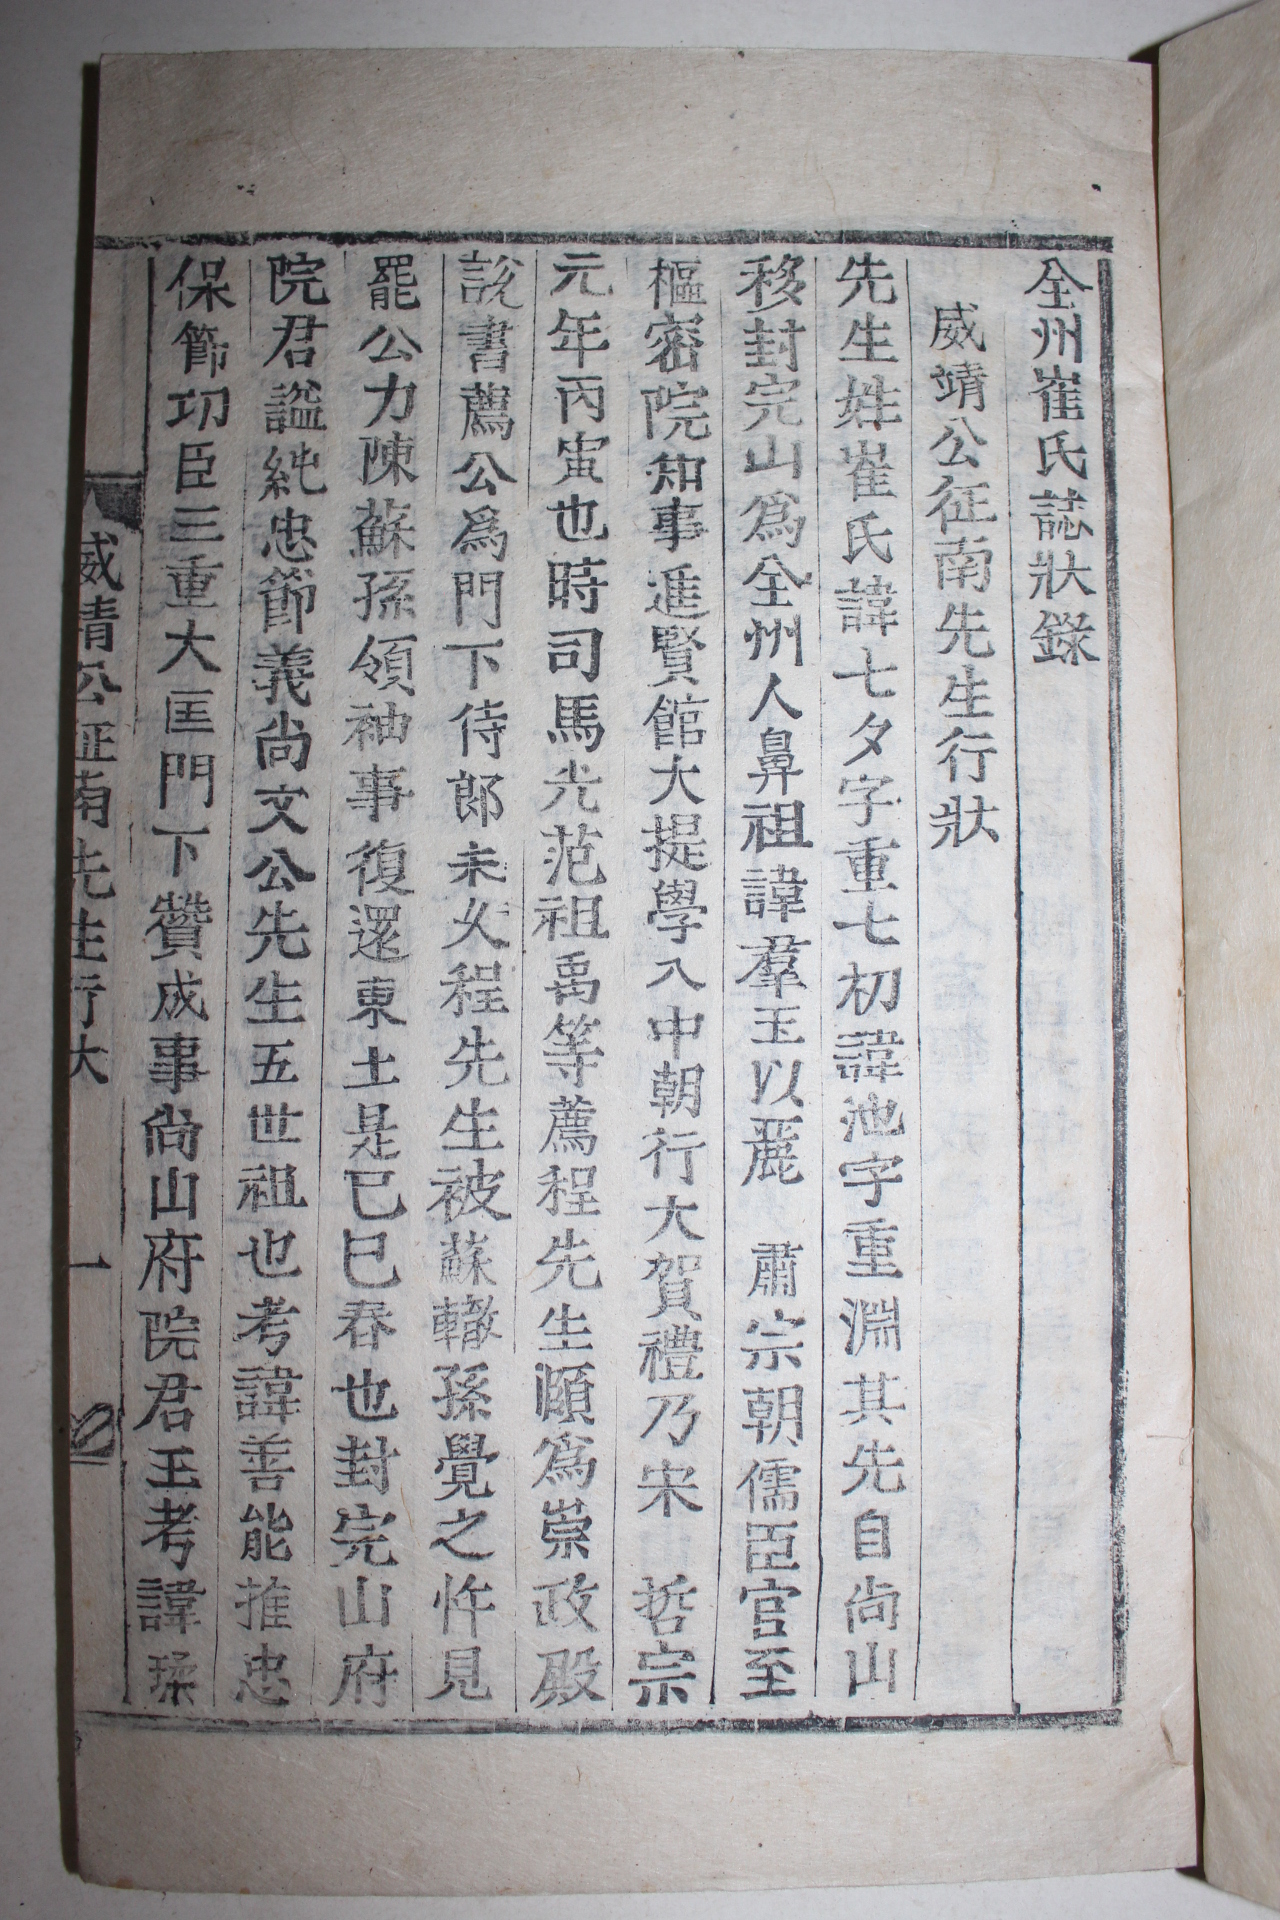 全州崔氏誌狀錄
威靖公征南先生行狀
先生姓崔氏諱七夕字重七初諱池字重淵其先自尙山
移封完山爲全州人鼻祖諱羣玉以麗 肅宗朝儒臣官至
樞密院知事進賢館大提學入中朝行大賀禮乃宋 哲宗
元年丙寅也時司馬光范祖禹等薦程先生頤爲崇政殿
說書薦公爲門下侍郎未久程先生被蘇轍孫覺之忤見
罷公力陳蘇孫領袖事復還東土是己巳春也封完山府
院君謚純忠節義尙文公先生五世祖也考諱善能推忠
保節功臣三重大匡門下贊成事尙山府院君王考諱瑈
威靖公征南先生行大 一